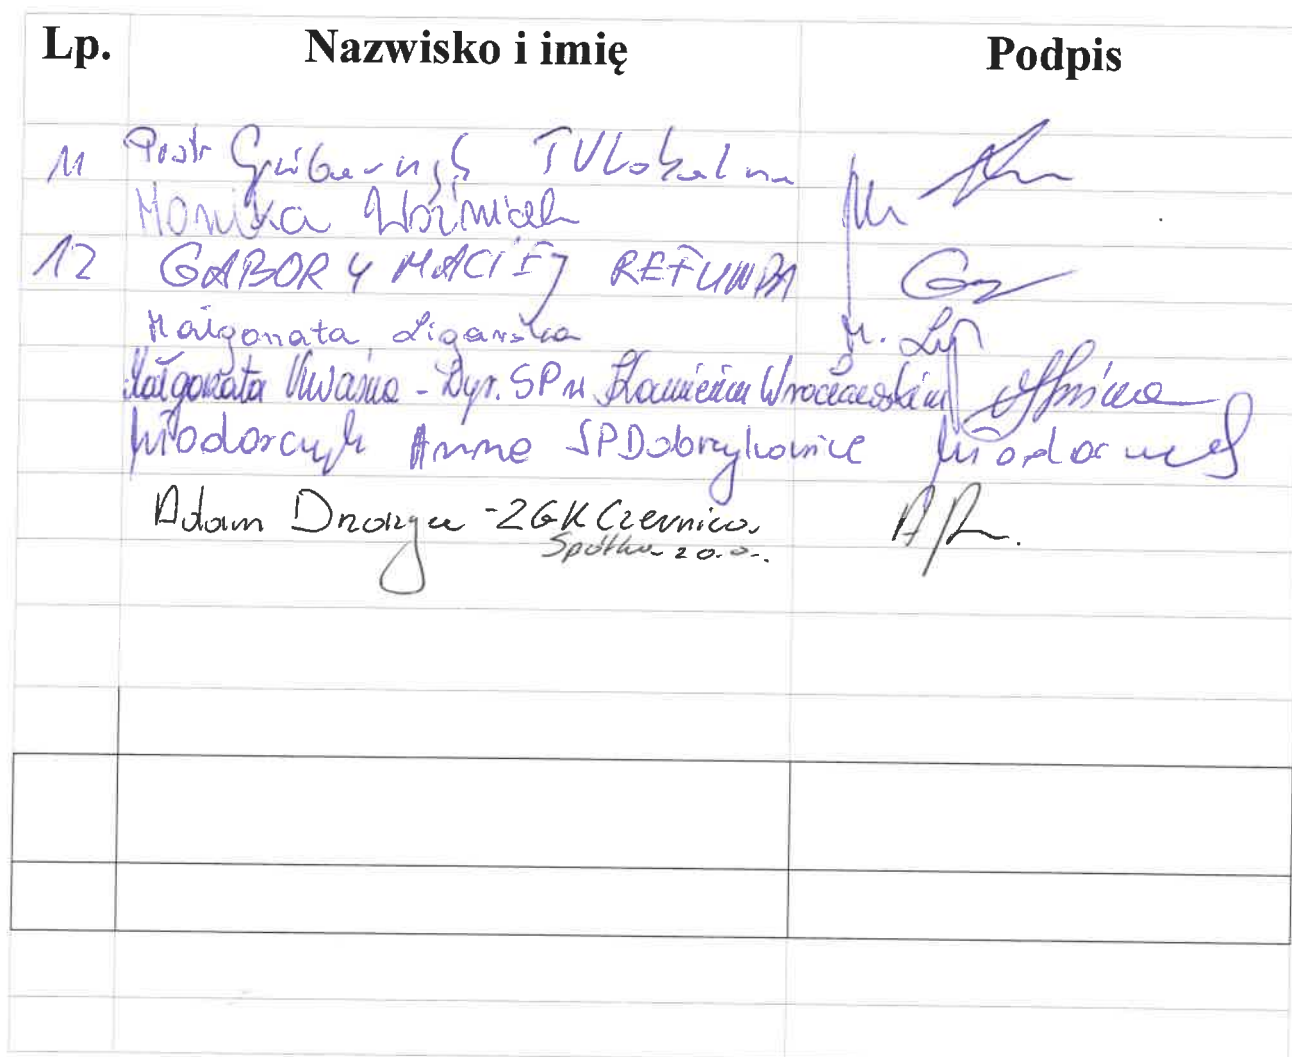 Lp. Nazwisko i imię Podpis
11 Piotr TV Lokalna
Monika Woźniak
12 GABORY MACIEJ REFUNDA
Małgorzata Ligarska M. Lig
Małgorzata Kwaśna - Dyr. SP w Kamieńcu Wrocławskim
Miodorczyk Anna SP Dobrzykowice Miodorczyk
Adam - ZGK Czernica
Spółka z o.o.